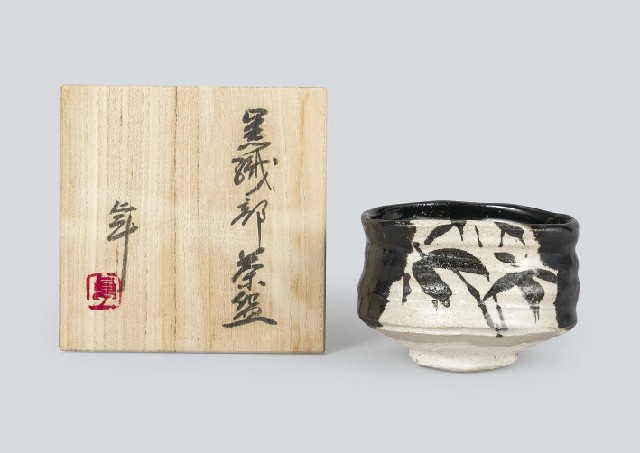 黒織部 茶盌